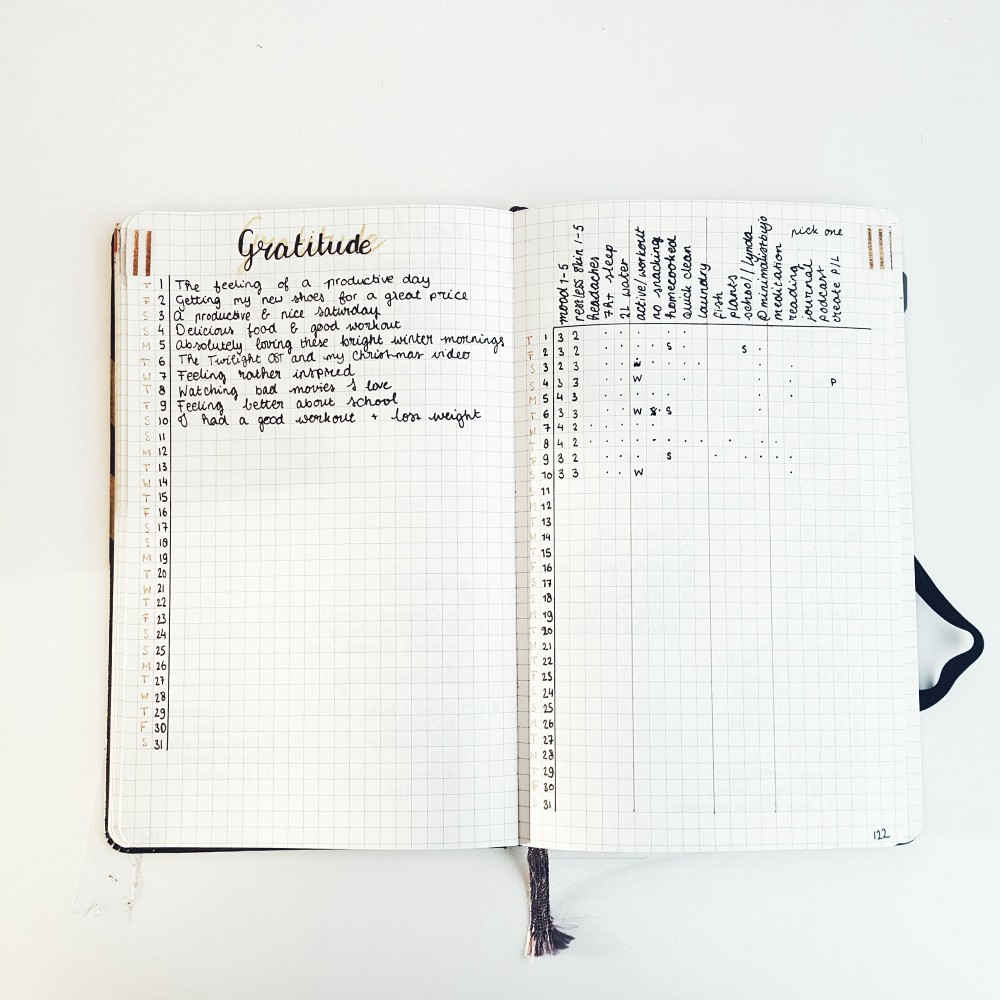 Gratitude
T 1 The feeling of a productive day
F 2 Getting my new shoes for a great price
S 3 A productive & nice saturday
S 4 Delicious food & good workout
M 5 Absolutely loving these bright winter mornings
T 6 The Twilight OST and my Christmas video
W 7 Feeling rather inspired
T 8 Watching bad movies I love
F 9 Feeling better about school
S 10 I had a good workout + lost weight
S 11
M 12
T 13
W 14
T 15
F 16
S 17
S 18
M 19
T 20
W 21
T 22
F 23
S 24
S 25
M 26
T 27
W 28
T 29
F 30
S 31
mood 1-5
restless skin 1-5
headaches
7h+ sleep
2L water
active/workout
no snacking
homecooked
quick clean
laundry
fish
plants
school/Lynda
@minimalistbujo
meditation
reading
journal
podcast
create P/L
pick one
T 1 3 2 · · · S ·
F 2 3 2 · · S ·
S 3 2 3 · · · · · ·
S 4 3 3 · · W · · P
M 5 4 3 · · · · · ·
T 6 3 3 · · W · S ·
W 7 4 2 · · · ·
T 8 4 2 · · · · · · · · · ·
F 9 3 2 · · · S · · · · ·
S 10 3 3 · · W ·
S 11
M 12
T 13
W 14
T 15
F 16
S 17
S 18
M 19
T 20
W 21
T 22
F 23
S 24
S 25
M 26
T 27
W 28
T 29
F 30
S 31
122